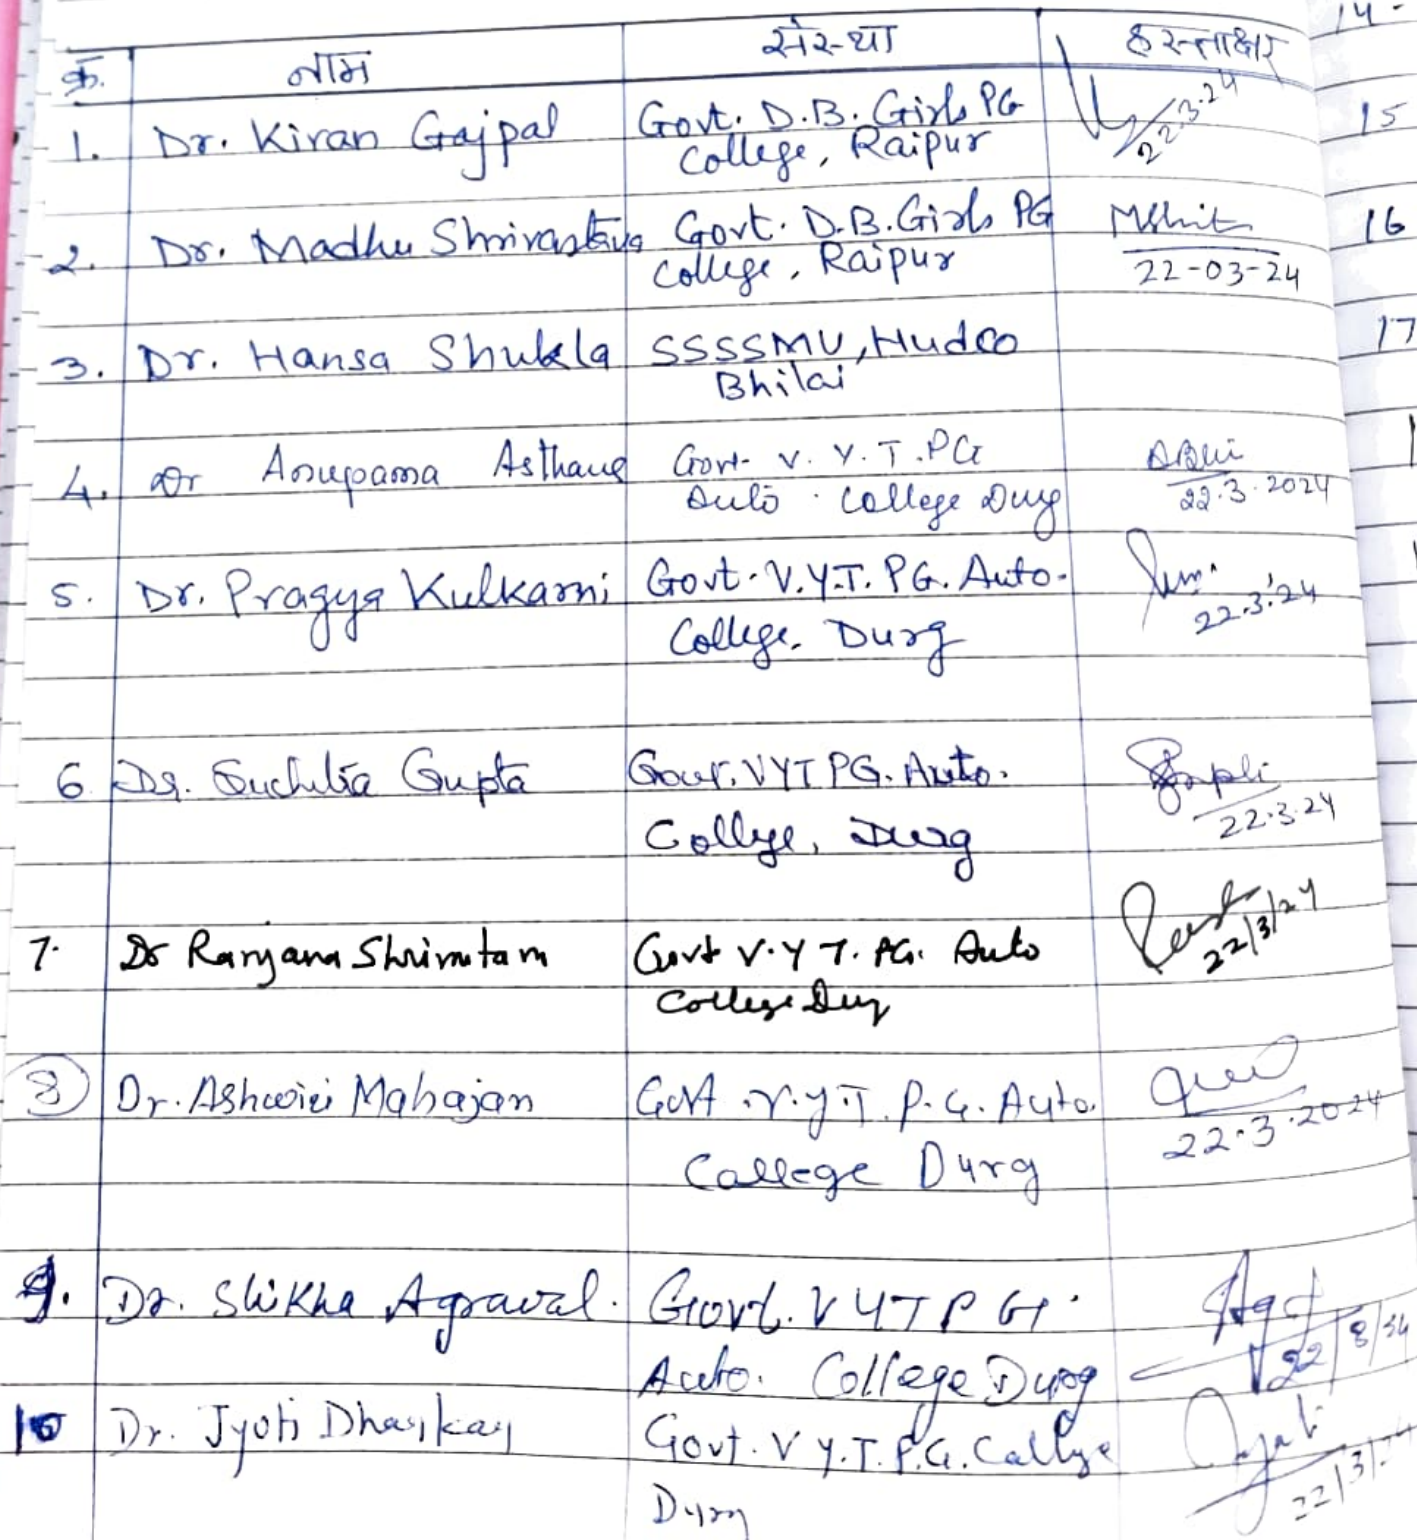 क्र. नाम संस्था हस्ताक्षर
14-
1. Dr. Kiran Gajpal Govt. D.B. Girls PG 22.3.24 15
College, Raipur
2. Dr. Madhu Shrivastava Govt. D.B. Girls PG 16
College, Raipur 22-03-24
3. Dr. Hansa Shukla SSSSMV, Hudco 17
Bhilai
4. Dr Anupama Asthana Govt. V. Y. T. PG
Auto. College Durg 22.3.2024
5. Dr. Pragya Kulkarni Govt. V.Y.T. PG. Auto.
College, Durg 22.3.24
6 Dr. Suchitra Gupta Govt. VYT PG. Auto.
College, Durg 22.3.24
7. Dr Ranjana Shrivastava Govt V.Y T. PG. Auto 22/3/24
College Durg
8 Dr. Ashwini Mahajan Govt. V.Y.T. P.G. Auto.
College Durg 22.3.2024
9. Dr. Shikha Agrawal. Govt. V Y T P G.
Auto. College Durg
10 Dr. Jyoti Dharkar Govt. V Y.T. P.G. College Jyoti
Durg 22/3/24